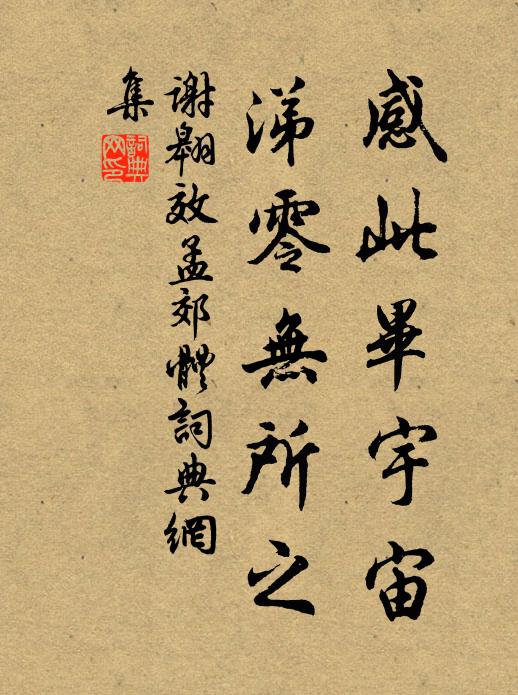 感此畢宇宙
涕零無所之
謝翱效孟郊體詞典網
集
詞典
网印